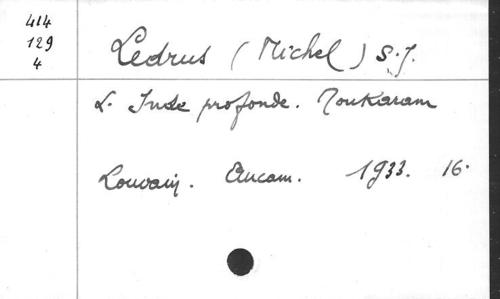 414
129
4
Ledrus (Michel) S.J.
L'Inde profonde. Toukaram
Louvain. Aucam. 1933. 16°